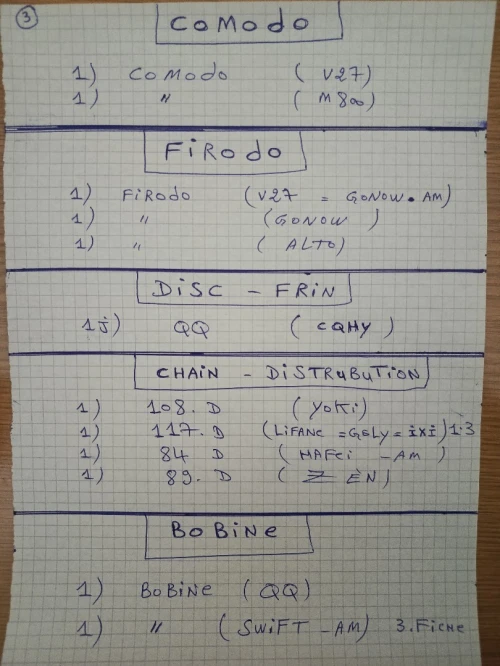 3
COMODO
1) COMODO ( V27)
1) " ( M800)
FiRodo
1) FiRodo (V27 = GONOW.AM)
1) " (GONOW )
1) " ( ALTO)
DiSC - FRiN
1j) QQ ( CQHY )
CHAiN - DiSTRuBuTiON
1) 108. D (YOKi)
1) 117. D (LiFANE =GELY = iXi) 1.3
1) 84 D ( HAFEi -AM )
1) 89. D ( Z ÈN)
BOBiNe
1) BOBiNe (QQ)
1) " ( SWiFT -AM) 3.FiCHe